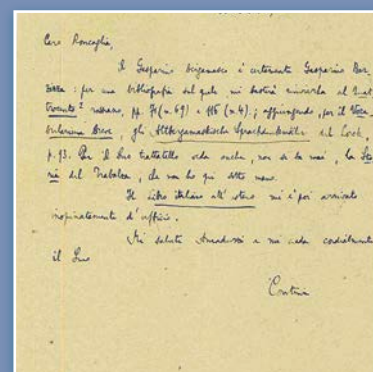 Caro Roncaglia,
il Gasparino bergamasco è certamente Gasparino Bar-
zizza: per una bibliografia sul quale mi basterà rinviarla al Quat-
trocento² rossiano, pp. 71 (n. 69) e 116 (n. 4); aggiungendo, per il Voca-
bularium Breve, gli Altbergamaskische Sprachdenkmäler del Lorck,
p. 93. Per il Suo trattatello veda anche, non si sa mai, la Sto-
ria del Trabalza, che non ho qui sotto mano.
Il Libro italiano all'estero mi è poi arrivato
inopinatamente d'ufficio.
Mi saluti Amadussi e mi creda cordialmente
il Suo
Contini